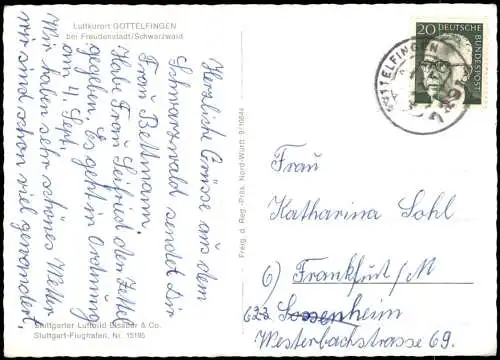 Luftkurort GÖTTELFINGEN
bei Freudenstadt/Schwarzwald
Herzliche Grüsse aus dem
Schwarzwald sendet Dir
Frau Bettmann.
Habe Frau Seifried den Zettel
gegeben. Es geht in Ordnung
am 4. Sept.
Wir haben sehr schönes Wetter
wir sind schon viel gewandert.
Stuttgarter Luftbild Elsäßer & Co.
Stuttgart-Flughafen, Nr. 15195
Freig. d. Reg.-Präs. Nord-Württ. 9/10844
20 DEUTSCHE
BUNDESPOST
GÖTTELFINGEN
Frau
Katharina Sohl
6) Frankfurt/M
623 Sossenheim
Westerbachstrasse 69.